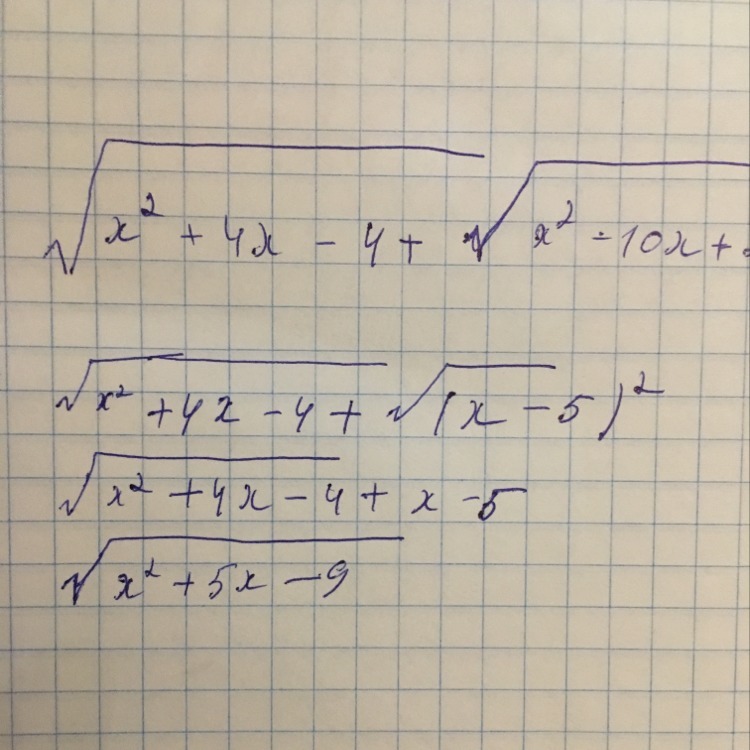 √x² + 4x - 4 + √x² - 10x +
√x² + 4x - 4 + √(x - 5)²
√x² + 4x - 4 + x - 5
√x² + 5x - 9